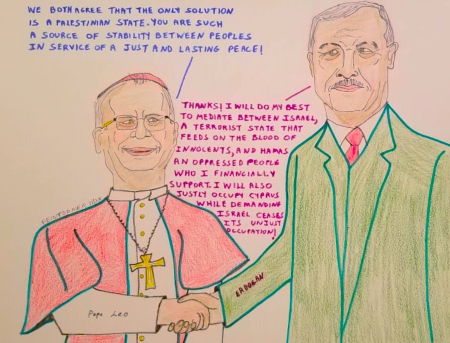 WE BOTH AGREE THAT THE ONLY SOLUTION
IS A PALESTINIAN STATE. YOU ARE SUCH
A SOURCE OF STABILITY BETWEEN PEOPLES
IN SERVICE OF A JUST AND LASTING PEACE!
THANKS! I WILL DO MY BEST
TO MEDIATE BETWEEN ISRAEL,
A TERRORIST STATE THAT
FEEDS ON THE BLOOD OF
INNOLENTS, AND HAMAS
AN OPPRESSED PEOPLE
WHO I FINANCIALLY
SUPPORT. I WILL ALSO
JUSTLY OCCUPY CYPRUS
WHILE DEMANDING
ISRAEL CEASES
ITS UNJUST
OCCUPATION!
Pope Leo
ERDOGAN